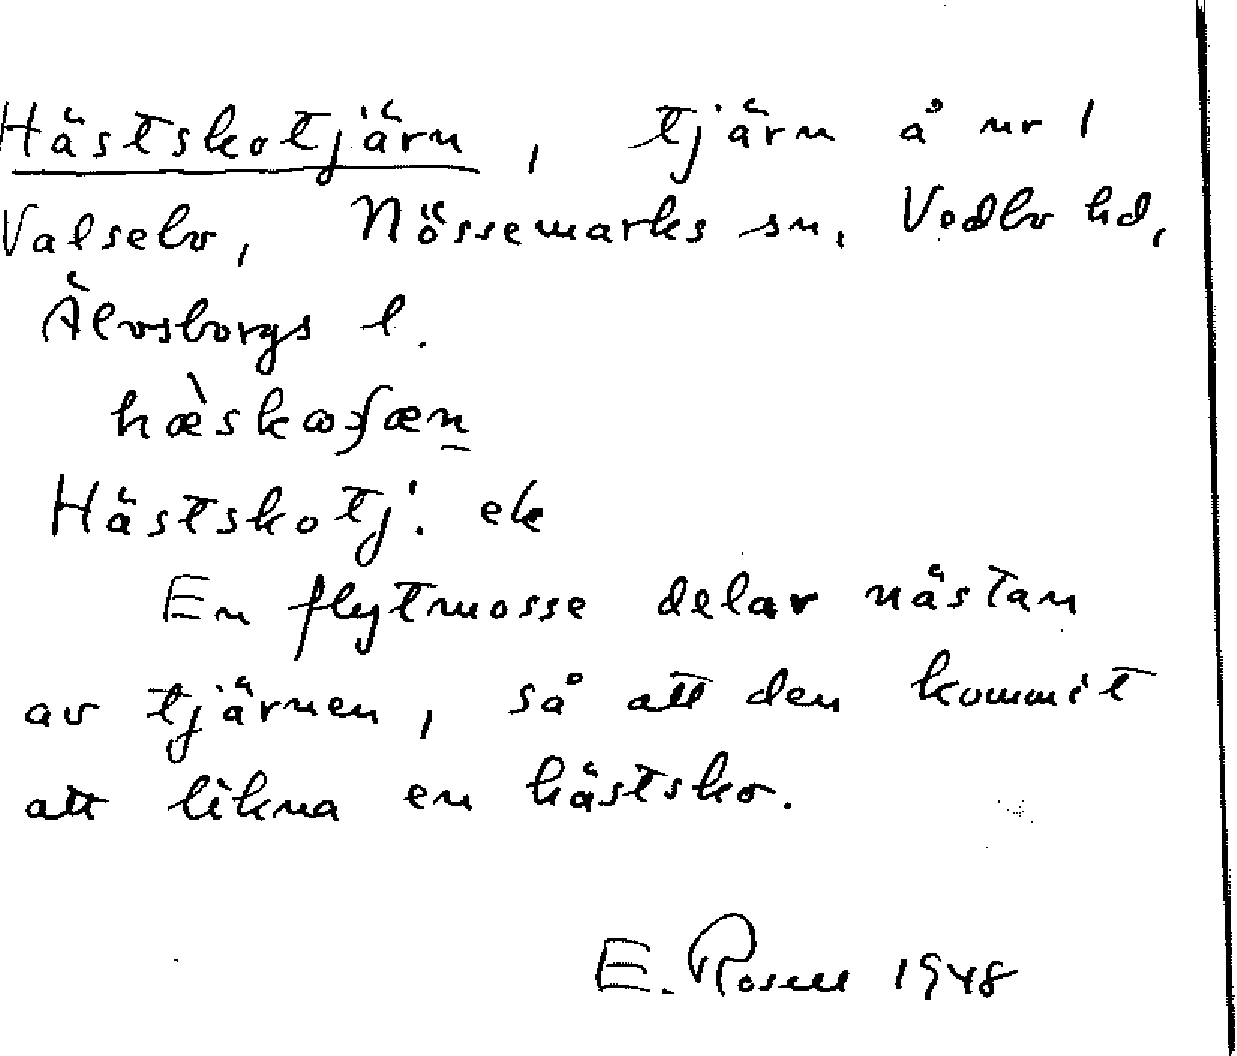 Hästskotjärn, tjärn å nr 1
Valsebo, Nössemarks sn, Vedbo hd,
Älvsborgs l.
hæ̀skoʃæn
Hästskotj: ek
En flytmosse delar nästan
av tjärnen, så att den kommit
att likna en hästsko.
E. Rosell 1948